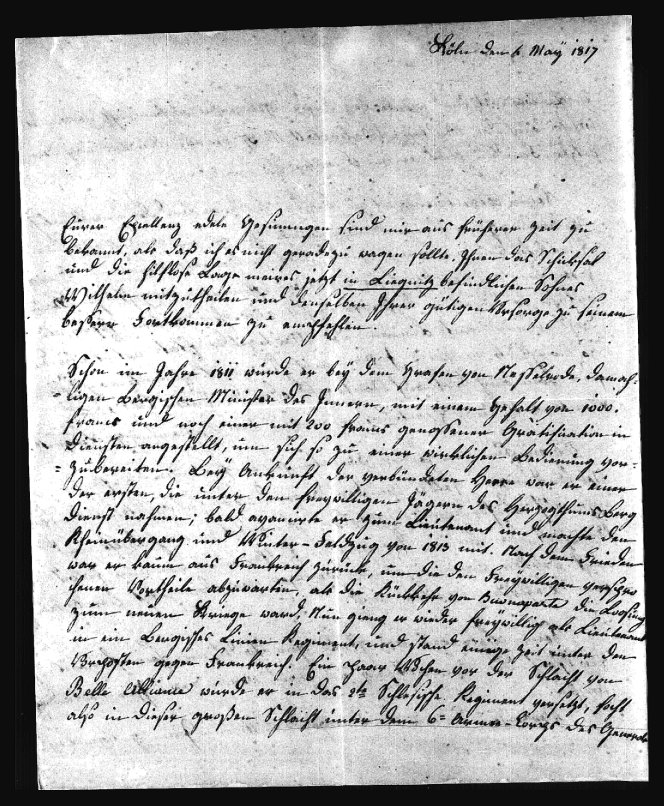 Köln den 6 May 1817
Eurer Excellenz edele Gesinnungen sind mir aus früherer Zeit zu
bekannt, als daß ich es nicht geradezu wagen sollte, Ihnen das Schicksal
und die hilflose Lage meines jetzt in Liegnitz befindlichen Sohnes
Wilhelm mitzutheilen und denselben Ihrer gütigen Vorsorge zu seinem
bessern Fortkommen zu empfehlen.
Schon im Jahre 1811 wurde er bey dem Grafen von Nesselrode, damah-
ligen Bergischen Minister des Innern, mit einem Gehalt von 1000
francs und noch einer mit 200 francs genossener Gratification in
Diensten angestellt, um sich so zu einer wirklichen Bedienung vor-
zubereiten. Bey Ankunft der verbündeten Heere war er einer
der ersten, die unter den freywilligen Jägern des Herzogthums Berg
Dienst nahmen; bald avancirte er zum Lieutenant und machte den
Rheinübergang und Winter-Feldzug von 1813 mit. Nach dem Frieden
war er kaum aus Frankreich zurück, um die den Freywilligen verspro
chenen Vortheile abzuwarten, als die Rückkehr von Buonaparte die Loosung
zum neuen Kriege ward. Nun gieng er wieder freywillig als Lieutenant
in ein Bergisches Linien Regiment, und stand einige Zeit unter den
Vorposten gegen Frankreich. Ein paar Wochen vor der Schlacht von
Belle Alliance wurde er in das 2te Schlesische Regiment versetzt, focht
also in dieser großen Schlacht unter dem 6= Armee-Corps des Generals